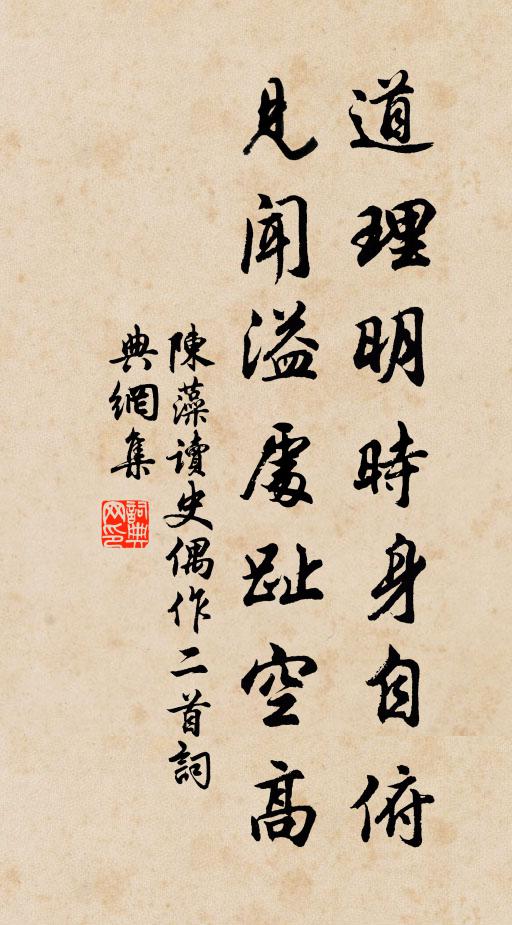 道理明時身自俯
見聞溢處趾空高
陳藻讀史偶作二首詞
典網集
詞典網印